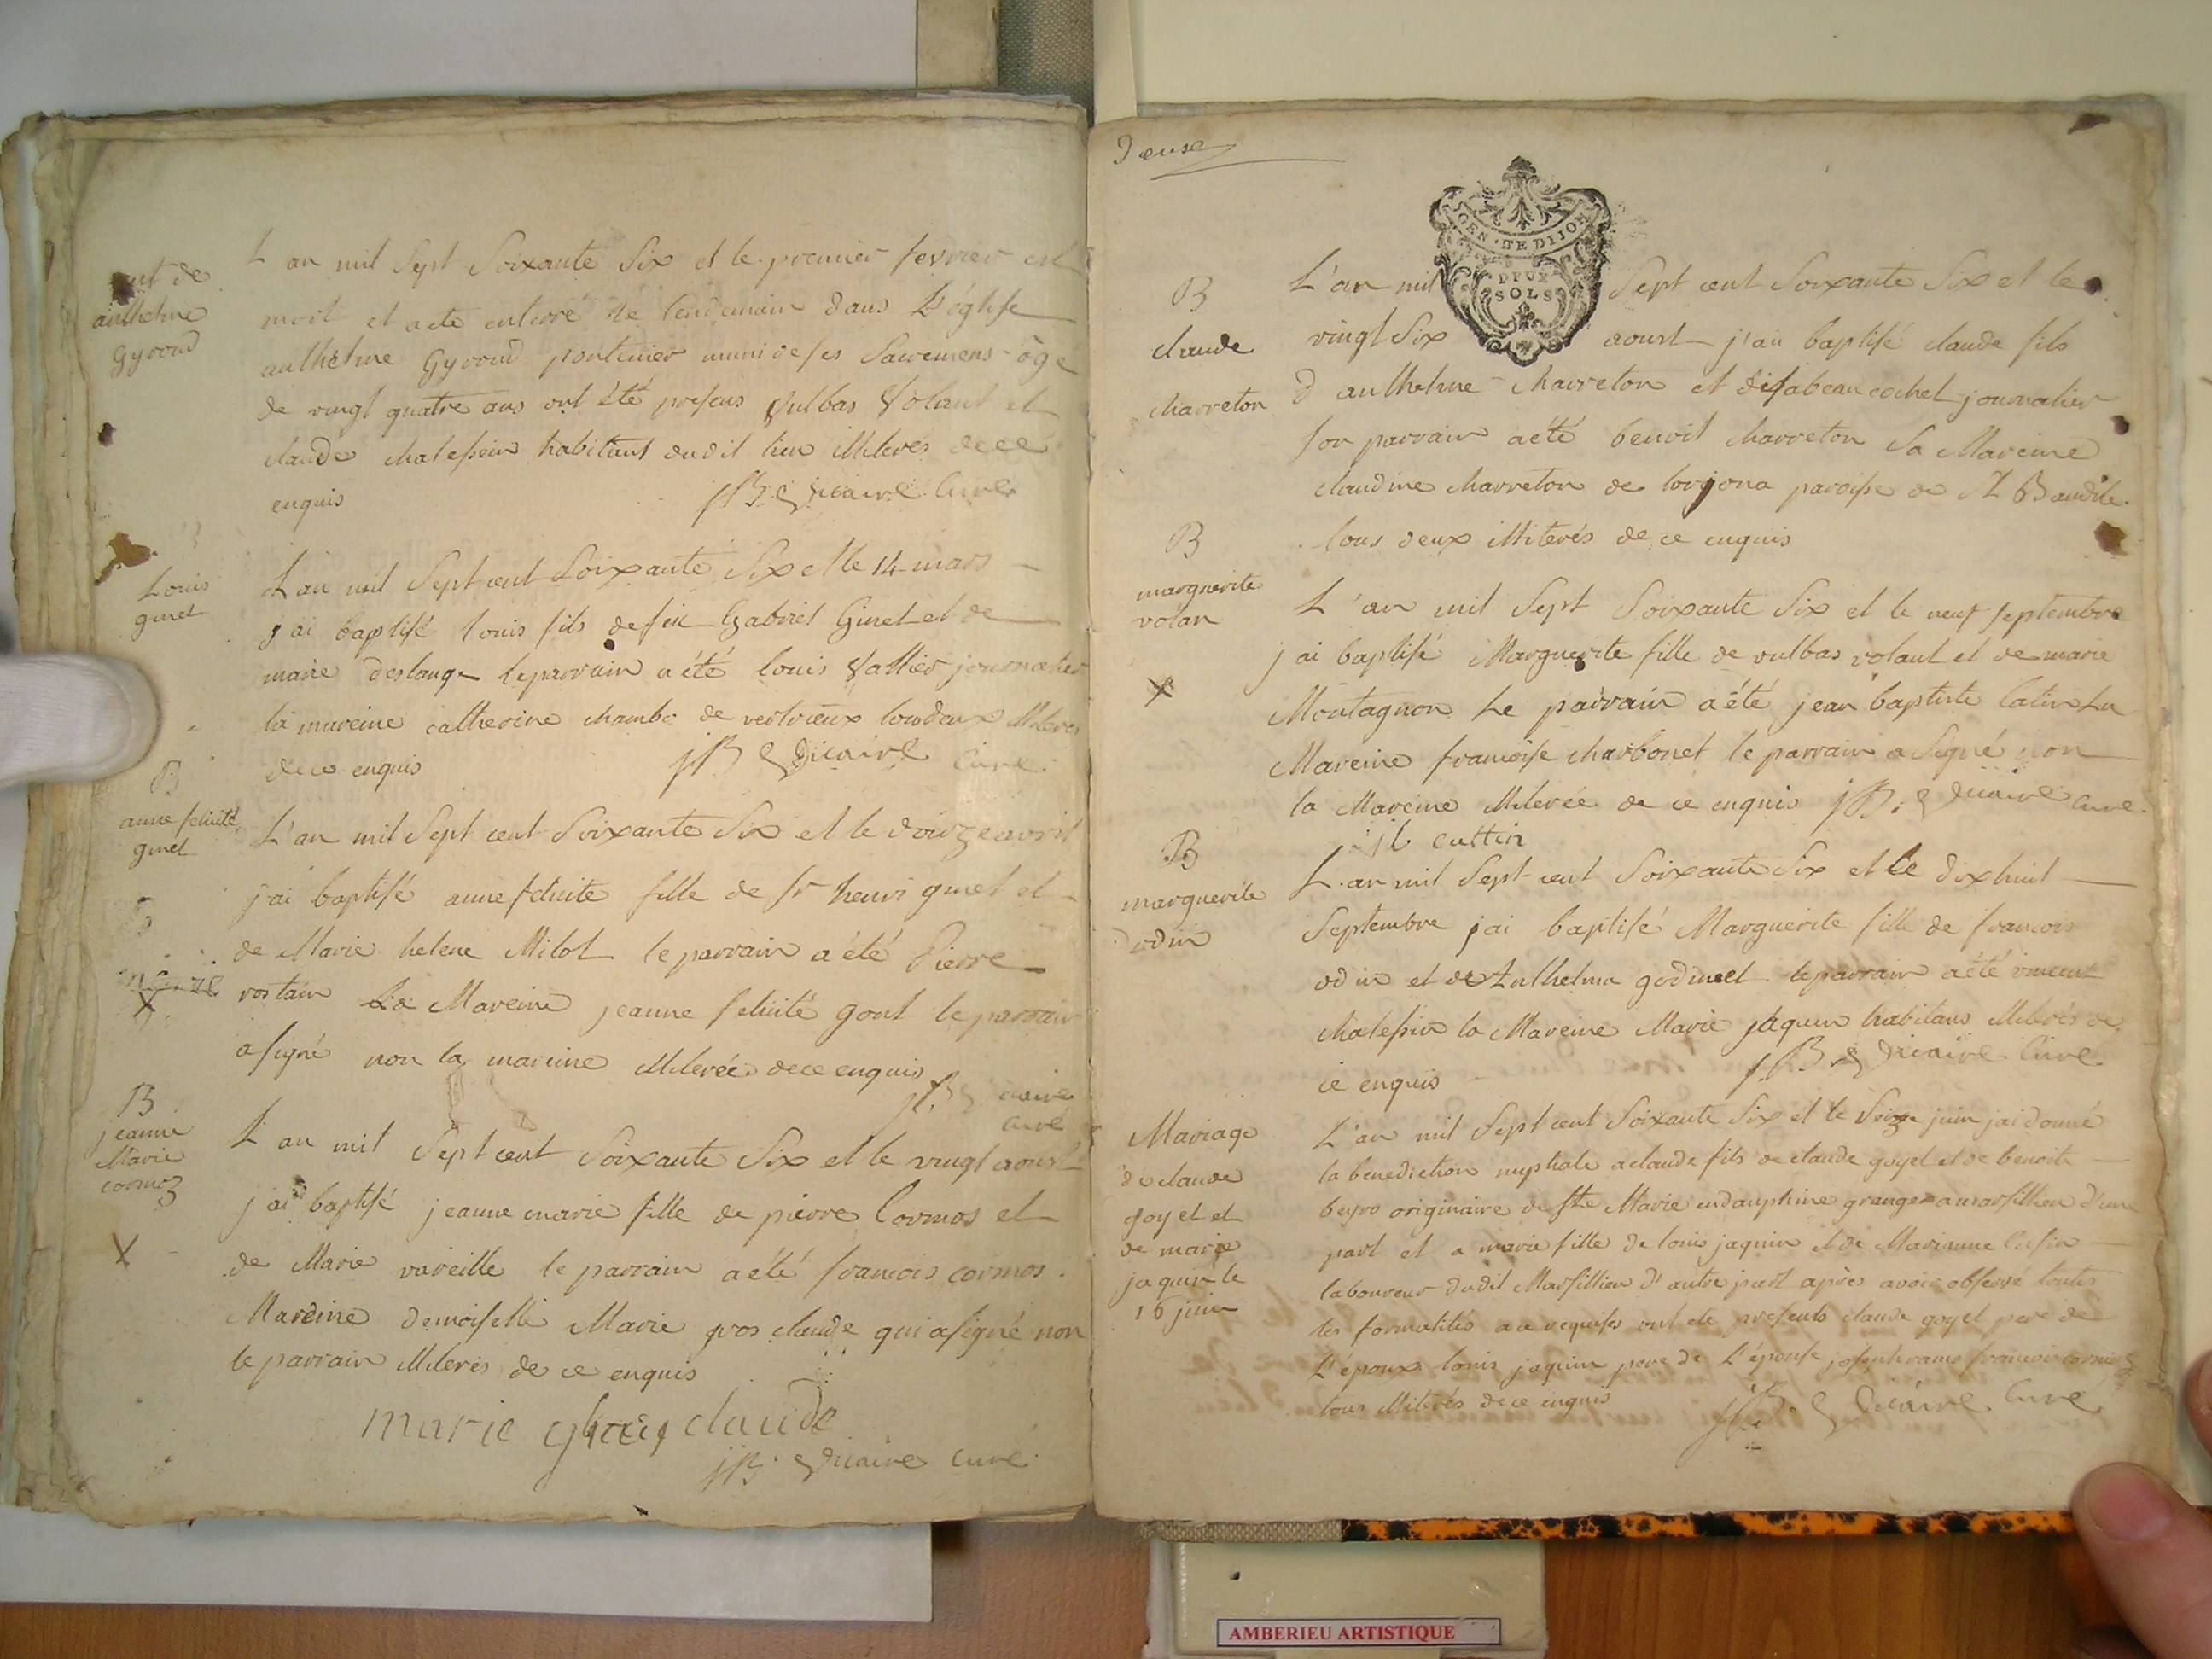 L an mil Sept Soixante Six et le premier fevrier est
mort et a eté enterré le lendemain dans L'église
anthelme Gyroud pontenier muni de ses Sacremens âge
de vingt quatre ans ont été presens Vulbas Volant et
claude chalessin habitans dudit lieu illiterés de ce
enquis
JB Dicaire Curé
de
anthelme
Gyroud
Louis
ginet
L an mil Sept cent Soixante Six et le 14 mars
j ai baptisé louis fils de feu Gabriel Ginet et de
marie deslange le parrain a été louis Vallier journalier
la mareine catherine chambe de vertrieux tous deux illiterés
de ce enquis
JB Dicaire Curé
B
anne felicité
ginet
L'an mil Sept cent Soixante Six et le douze avril
j'ai baptisé anne felicite fille de sr henri ginet et
de Marie helene Milot le parrain a été Pierre
rostain La Mareine jeanne felicité gout le parrain
a signé non la mareine illiterée de ce enquis
curé
B
jeanne
Marie
cormoz
X
L an mil Sept cent Soixante Six et le vingt aoust
j ai baptisé jeanne marie fille de pierre Cormos et
de Marie vareille le parrain a été francois cormos
Mareine demoiselle Marie gros claude qui a signé non
le parrain illiteres de ce enquis
marie gros claude
JB Dicaire curé
GEN. DE DIJON
DEUX
SOLS
B
claude
charreton
L'an mil Sept cent Soixante Six et le
vingt Six aoust j'ai baptisé claude fils
d anthelme charreton et d'isabeau cochet journalier
son parrain a été benoit charreton Sa Mareine
claudine charreton de paroisse de St Baudile
tous deux illiterés de ce enquis
B
marguerite
volan
X
L'an mil Sept Soixante Six et le neuf septembre
j ai baptisé Marguerite fille de vulbas volant et de marie
Montagnon Le parrain a été jean baptiste La
Mareine francoise charbonet le parrain a Signé non
la Mareine illiterée de ce enquis JB Dicaire curé
cuttin
B
marguerite
odin
L an mil Sept cent Soixante Six et le dix huit
Septembre j ai baptisé Marguerite fille de francois
odin et de Anthelma godinet le parrain a été vincent
chalessin la Mareine Marie jaquin habitans illiterés de
ce enquis
JB Dicaire Curé
Mariage
de claude
goyet et
de marie
jaquin le
16 juin
L'an mil Sept cent Soixante Six et le Seize juin j ai donné
la benediction nuptiale a claude fils de claude goyet et de benoite
originaire de Ste Marie en dauphine granger a marsillieu d'une
part et a marie fille de louis jaquin et de Marianne
laboureur dudit Marsillieu d'autre part après avoir observé toutes
les formalités a ce requises ont ete presents claude goyet pere de
L'époux louis jaquin pere de L'épouse joseph rame francois cormoz
tous illiterés de ce enquis
JB Dicaire Curé
AMBERIEU ARTISTIQUE